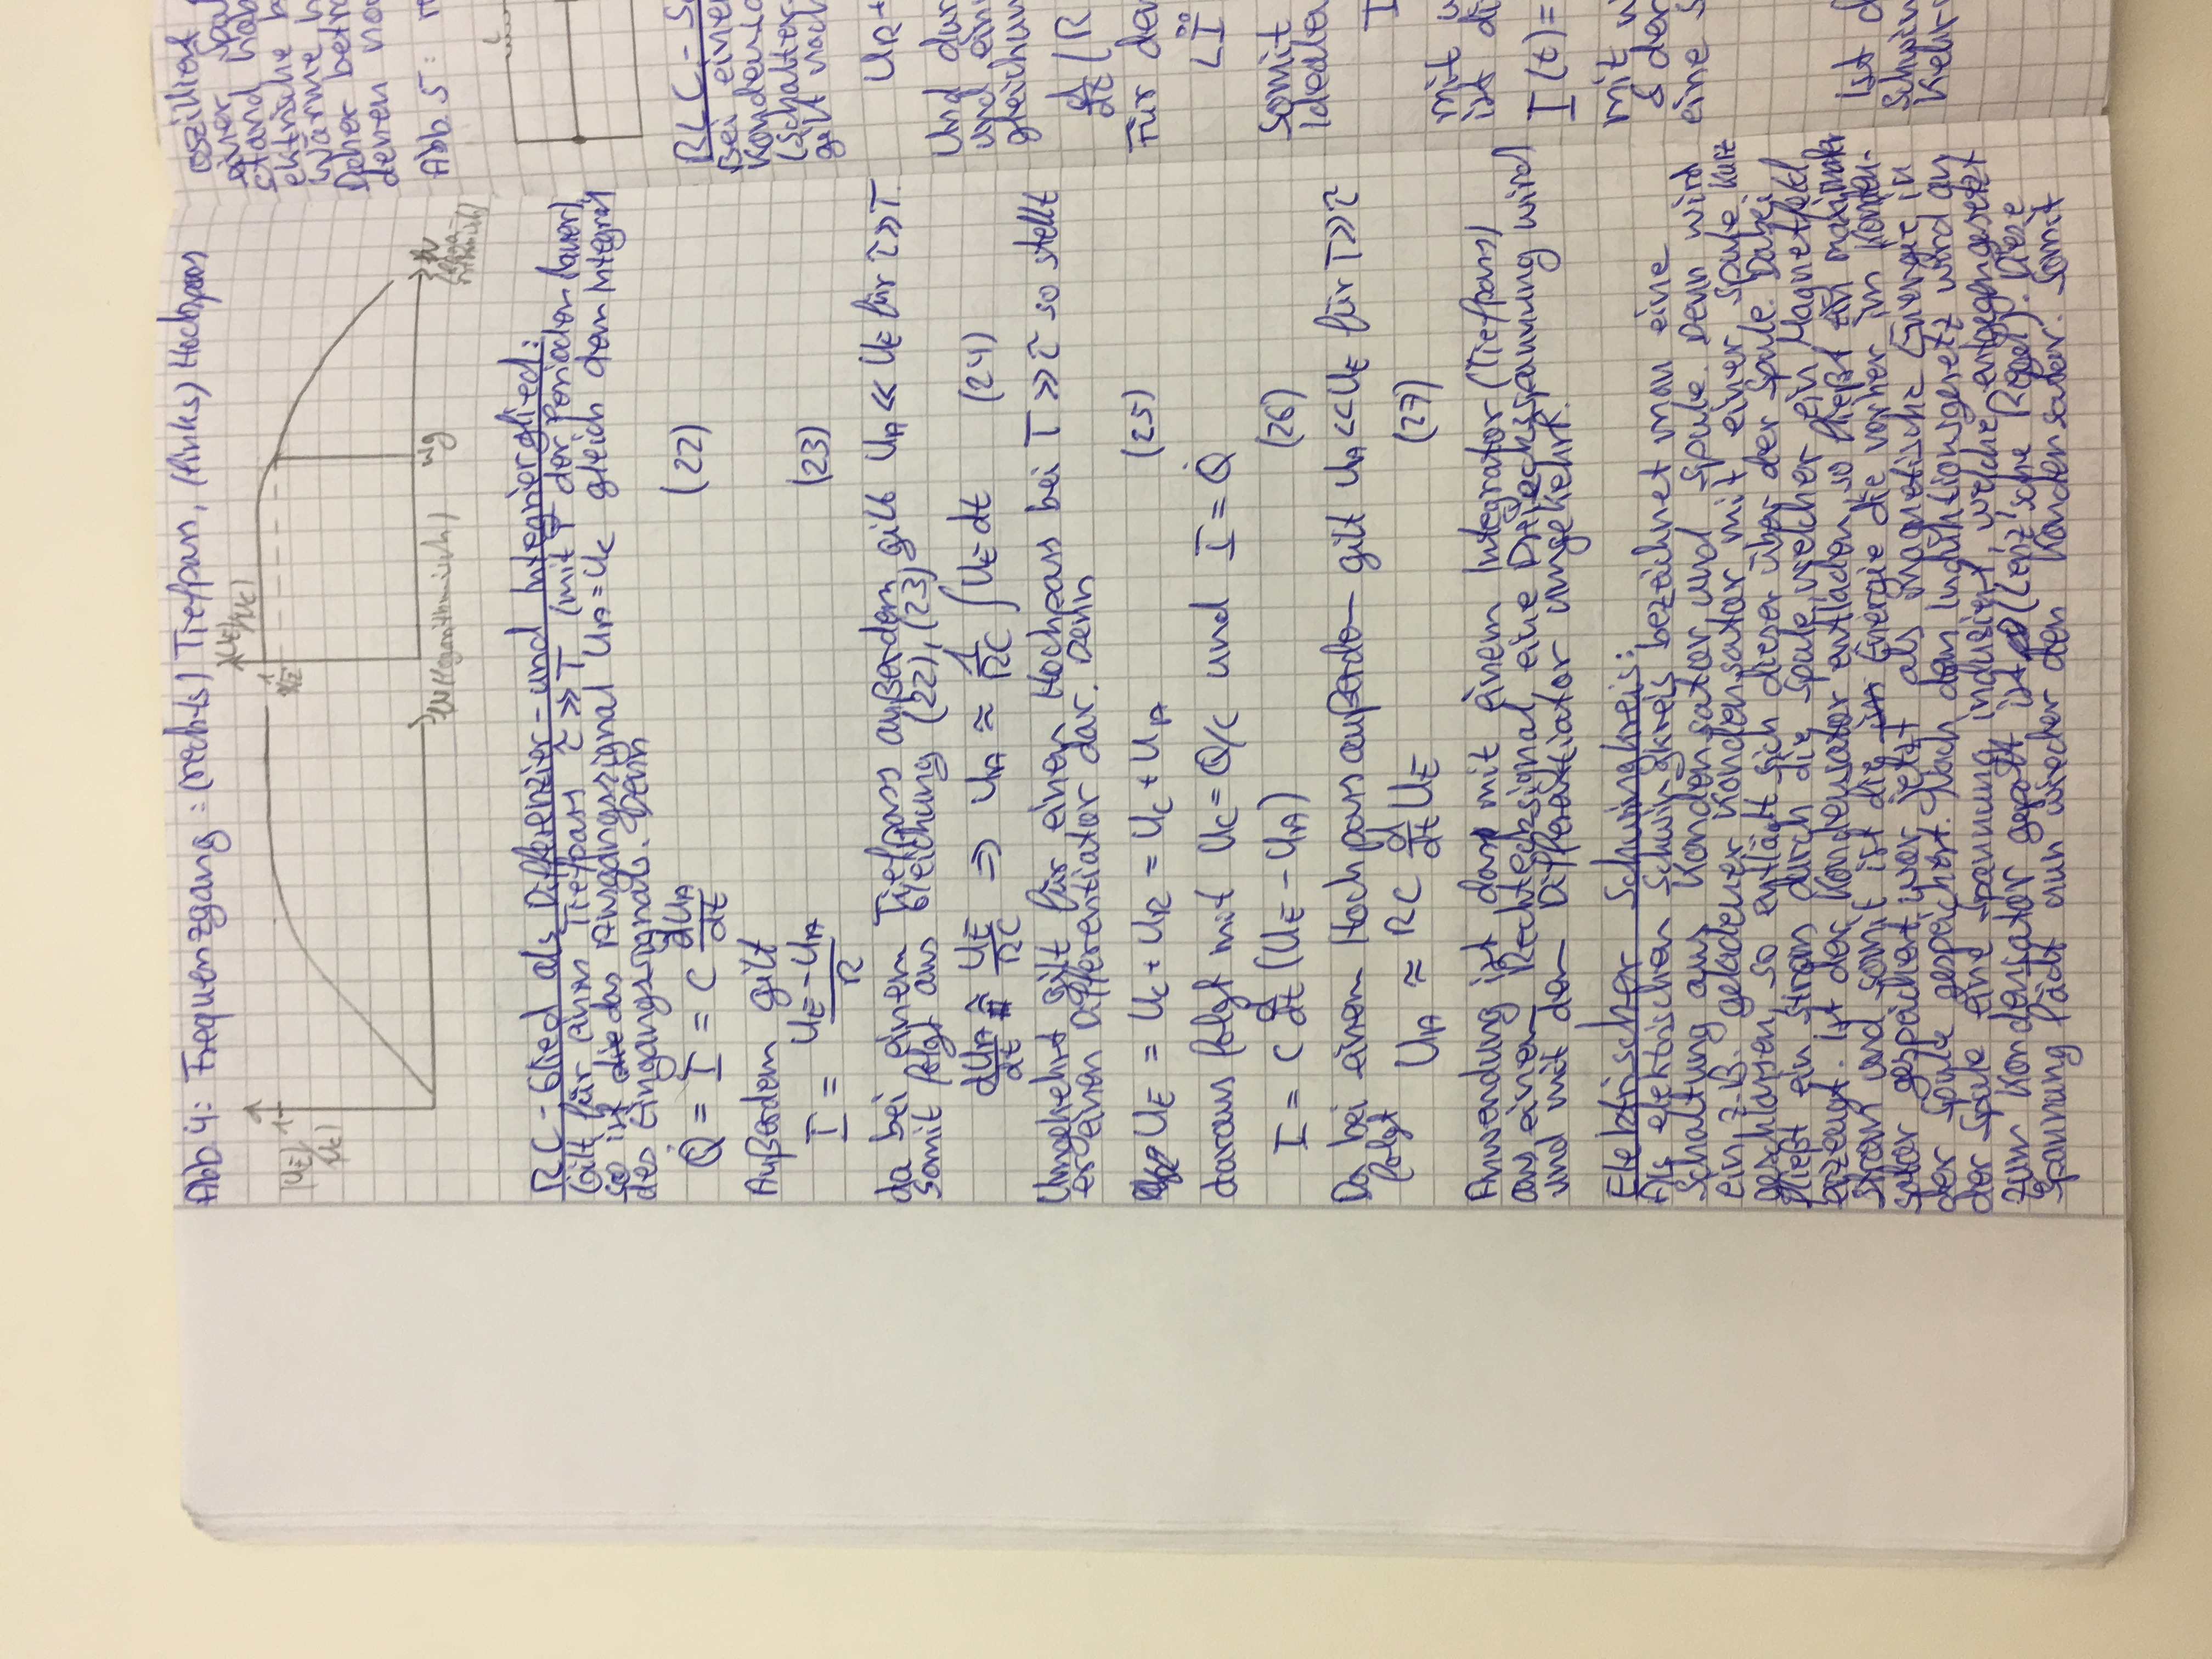 Abb. 4: Frequenzgang: (rechts) Tiefpass, (links) Hochpass
|UE/
UC|
1
ω (logarithmisch)
|UE/UC|
1
1/√2
ωg
ω
(loga-
rithmisch)
RC-Glied als Differenzier- und Integrierglied:
Gilt für einen Tiefpass τ ≫ T (mit T der Periodendauer),
so ist das Ausgangssignal UA = UC gleich dem Integral
des Eingangssignals. Denn
Q̇ = I = C dUA/dt (22)
Außerdem gilt
I = (UE - UA)/R (23)
da bei einem Tiefpass außerdem gilt UA ≪ UE für τ ≫ T.
Somit folgt aus Gleichung (22), (23)
dUA/dt ≈ UE/RC ⇒ UA ≈ 1/RC ∫ UE dt (24)
Umgekehrt gilt für einen Hochpass bei T ≫ τ so stellt
er einen Differentiator dar. Denn
UE = UC + UR = UC + UA (25)
daraus folgt mit UC = Q/C und I = Q̇
I = C d/dt (UE - UA) (26)
Da bei einem Hochpass außerdem gilt UA << UE für T ≫ τ
folgt
UA ≈ RC d/dt UE (27)
Anwendung ist, dass mit einem Integrator (Tiefpass)
aus einem Rechtecksignal eine Dreiecksspannung wird
und mit dem Differentiator umgekehrt.
Elektrischer Schwingkreis:
Als elektrischen Schwingkreis bezeichnet man eine
Schaltung aus Kondensator und Spule. Denn wird
ein z.B. geladener Kondensator mit einer Spule kurz
geschlossen, so entlädt sich dieser über der Spule. Dabei
fließt ein Strom durch die Spule, welcher ein Magnetfeld
erzeugt. Ist der Kondensator entladen, so fließt ein maximaler
Strom und somit ist die Energie die vorher im Konden-
sator gespeichert war jetzt als magnetische Energie in
der Spule gespeichert. Nach dem Induktionsgesetz wird an
der Spule eine Spannung induziert, welche entgegengesetzt
zum Kondensator gepolt ist (Lenz'sche Regel). Diese
Spannung lädt nun wieder den Kondensator. Somit
oszilliert
einer
stand
ektrische
Wärme
Daher
denen
Abb. 5:
L
RLC-
Bei einer
(Schalter
gilt nach
UR +
Und
und
d/dt (R
Für den
L Ï
Somit
I
mit
ist die
I(t) =
mit
δ der
eine
Ist